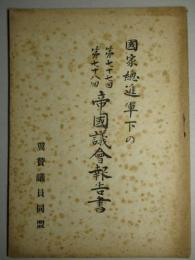 國家總進軍下の
第七十七回
第七十八回
帝國議會報告書
翼賛議員同盟